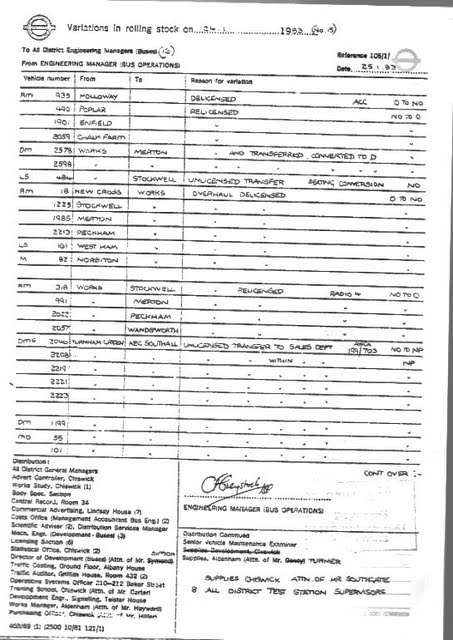 Variations in rolling stock on 24.1 1983 (No. 5)
To All District Engineering Managers (Buses) (16)
From ENGINEERING MANAGER (BUS OPERATIONS)
Reference 105/1/
Date 25.1.83
Vehicle number From To Reason for variation
RM 935 HOLLOWAY DELICENSED ACC O TO NO
490 POPLAR RELICENSED NO TO O
1901 ENFIELD " "
2059 CHALK FARM " "
DM 2578 WORKS MERTON " AND TRANSFERRED, CONVERTED TO D "
2598 " " " " " " " "
LS 484 STOCKWELL UNLICENSED TRANSFER SEATING CONVERSION NO
RM 18 NEW CROSS WORKS OVERHAUL DELICENSED O TO NO
1225 STOCKWELL " " " "
1985 MERTON " " " "
2213 PECKHAM " " " "
LS 101 WEST HAM " " " "
M 82 NORBITON " " " "
RM 318 WORKS STOCKWELL " RELICENSED RADIO 4 NO TO O
991 " MERTON " " "
2022 " PECKHAM " " "
2057 " WANDSWORTH " " "
DMS 2040 TURNHAM GREEN AEC SOUTHALL UNLICENSED TRANSFER TO SALES DEPT 199/703 NO TO NP
2208 " " " WITHIN " " NP
2219 " " " " " " "
2221 " " " " " " "
2223 " " " " " " "
DM 1199 " " " " " " "
MD 55 " " " " " " "
101 " " " " " " "
CONT OVER :-
Distribution :
All District General Managers
Advert Controller, Chiswick
Works Study, Chiswick (1)
Body Spec. Section
Central Record, Room 34
Commercial Advertising, Lindsay House (7)
Costs Office (Management Accountant Bus Eng.) (2)
Scientific Adviser (2), Distribution Services Manager
Mech. Engr. (Development - Buses) (3)
Licensing Section (6)
Statistical Office, Chiswick (2)
Director of Development (Buses) (Attn. of Mr. Symons)
Traffic Costing, Ground Floor, Albany House
Traffic Auditor, Griffith House, Room 432 (2)
Operations Systems Officer 210-212 Baker Street
Training School, Chiswick (Attn. of Mr. Carter)
Development Engr., Signalling, Telstar House
Works Manager, Aldenham (Attn. of Mr. Hayward)
Photographic Unit, Chiswick (Attn. of Mr. Hillier)
403/69 (1) (2500 10/81 121/1)
ENGINEERING MANAGER (BUS OPERATIONS)
Distribution Continued
Senior Vehicle Maintenance Examiner
Supplies Development, Chiswick
Supplies, Aldenham (Attn. of Mr. TURNER
SUPPLIES CHISWICK ATTN. OF MR SOUTHGATE
8 ALL DISTRICT TEST STATION SUPERVISORS